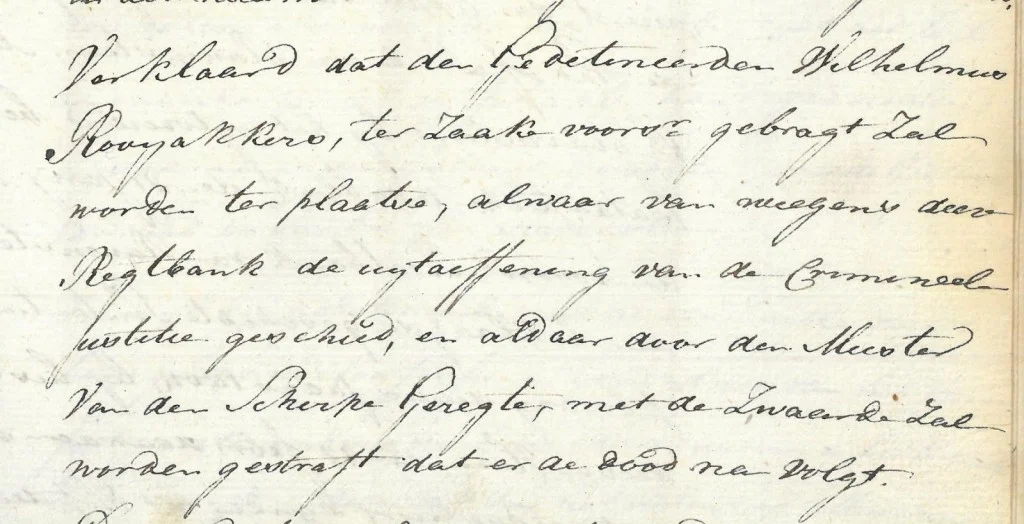 Verklaard dat den Gedetineerden Wilhelmus
Rooyakkers, ter Zaake voorsr gebragt Zal
worden ter plaatse, alwaar van weegens deese
Regtbank de uytoeffening van de Crimineel
justitie geschied, en aldaar door den Meester
van den Scherpe Geregte, met de Zwaarde Zal
worden gestraft dat er de dood na volgt.